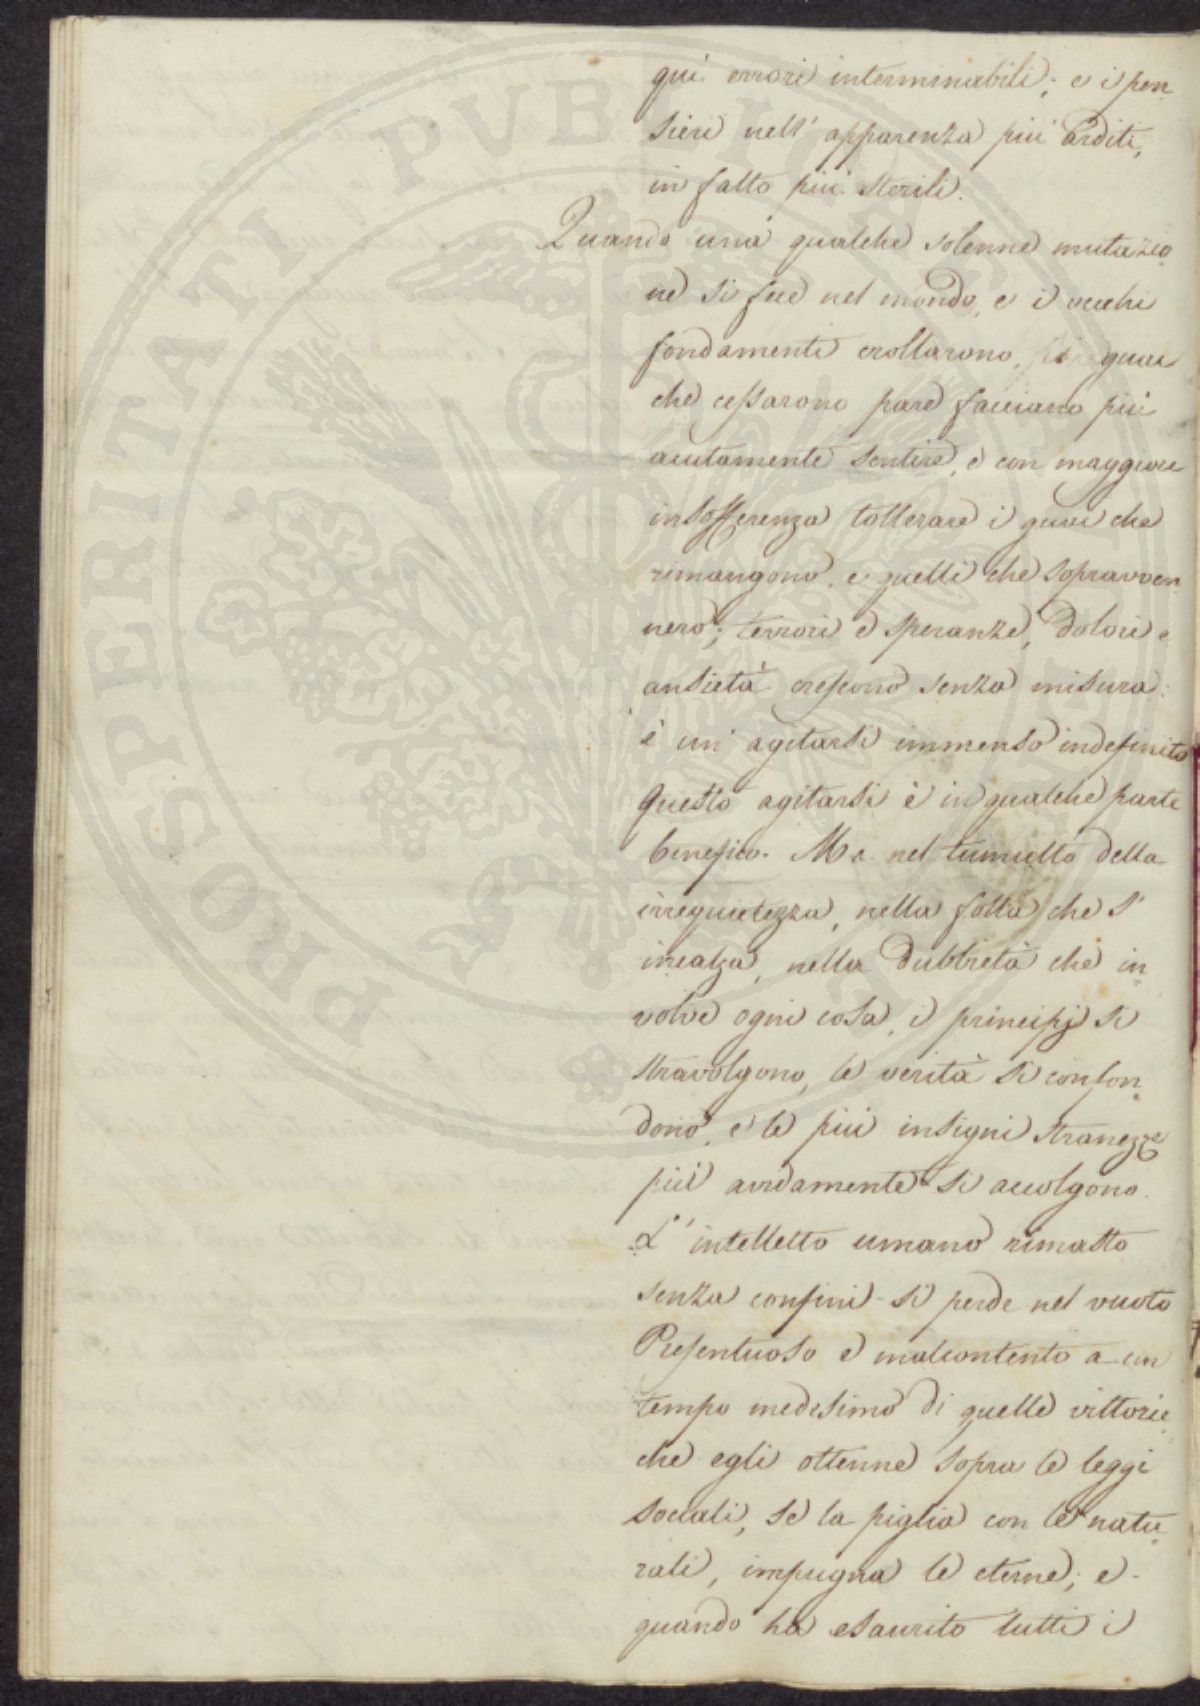 qui errori interminabili; e i pen
sieri nell' apparenza più arditi,
in fatto più sterili.
Quando una qualche solenne mutazio
ne si fece nel mondo, e i vecchi
fondamenti crollarono, i guai
che cessarono pare facciano più
acutamente sentire, e con maggiore
insofferenza tollerare i guai che
rimangono, e quelli che sopravven
nero; terrori e speranze, dolori e
ansietà crescono senza misura:
è un' agitarsi immenso indefinito
Questo agitarsi è in qualche parte
benefico. Ma nel tumulto della
irrequietezza, nella folla che s'
incalza, nella dubbietà che in
volve ogni cosa, i principj si
stravolgono, le verità si confon
dono, e le più insigni stranezze
più avidamente si accolgono.
L'intelletto umano rimasto
senza confini si perde nel vuoto
Presentuoso e malcontento a un
tempo medesimo di quelle vittorie
che egli ottenne sopra le leggi
sociali, se la piglia con le natu
rali, impugna le eterne; e
quando ha esaurito tutti i
PROSPERITATI PUBLICAE